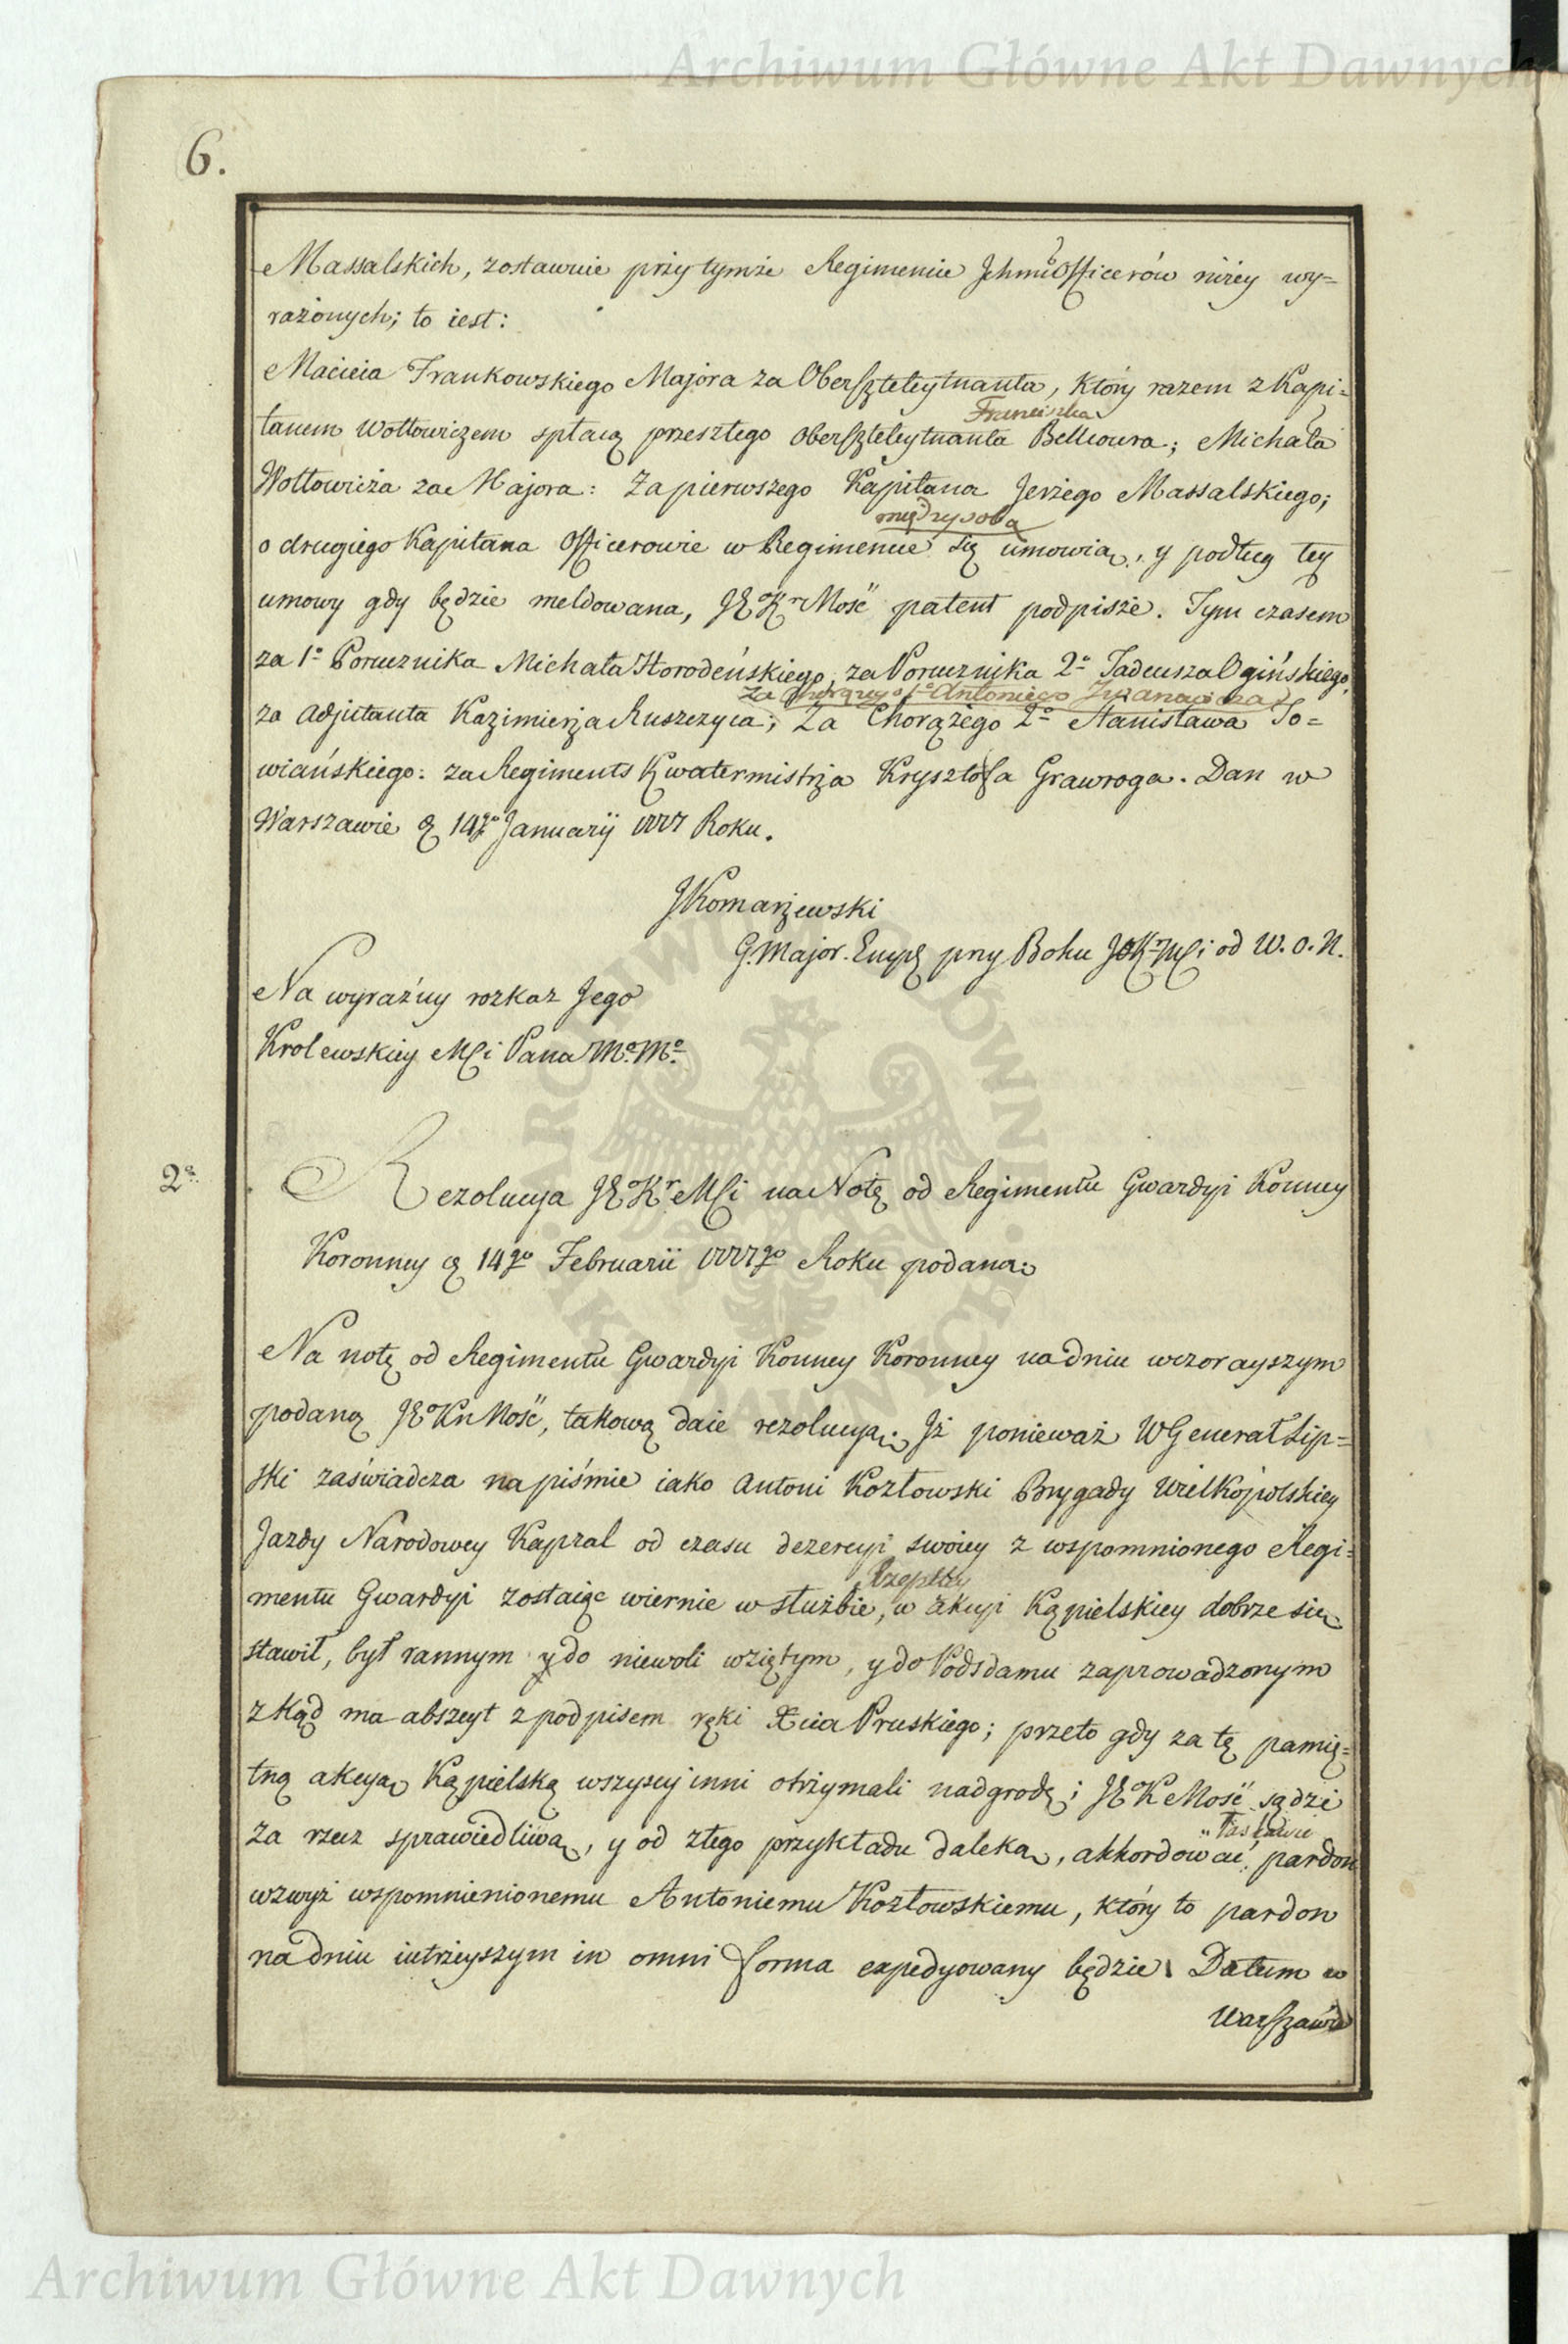 Archiwum Główne Akt Dawnych
6.
Massalskich, zostawuie przy tymże Regimencie Ichmciów Officerów niżey wy=
rażonych; to iest:
Macieia Frankowskiego Majora za Oberszteleytnanta, który razem z Kapi=
Franciszka
tanem Wołłowiczem spłacą przeszłego Oberszteleytnanta Bellcoura; Michała
Wołłowicza za Majora: Za pierwszego Kapitana Jerzego Massalskiego;
między sobą
o drugiego Kapitana Officerowie w Regimencie się umowią, y podług tey
umowy gdy będzie meldowana, JEoKr Mość patent podpisze. Tym czasem
za 1o Porucznika Michała Horodeńskiego, za Porucznika 2o Tadeusza Ogińskiego,
za Chorążego 1o Antoniego
za Adjutanta Kazimierza Ruszczyca; Za Chorążego 2o Stanisława To=
wiańskiego: za Regiments Kwatermistrza Krysztofa Grawroga. Dan w
Warszawie D 14go Januarij 1777 Roku.
JKomarzewski
G. Major. przy Boku JoKrMci od W. o. N.
Na wyraźny rozkaz Jego
Krolewskiey Mci Pana Mo Mo
2o.
Rezolucya JEoKr Mci na Notę od Regimentu Gwardyi Konney
Koronney D 14go Februarii 1777go Roku podana:
Na notę od Regimentu Gwardyi Konney Koronney na dniu wczorayszym
podaną JEoKr Mość, takową daie rezolucyą: Iż ponieważ WGenerał Lip=
ski zaświadcza na piśmie iako Antoni Kozłowski Brygady Wielkopolskiey
Jazdy Narodowey Kapral od czasu dezercyi swoiey z wspomnionego Regi=
Rzeplttey
mentu Gwardyi zostaiąc wiernie w służbie, w akcyi Kąpielskiey dobrze się
stawił, był rannym y do niewoli wziętym, y do Podsdamu zaprowadzonym
zkąd ma abszeyt z podpisem ręki Xcia Pruskiego; przeto gdy za tę pamię=
tną akcyą Kąpielską wszyscy inni otrzymali nadgrodę; JEoK Mość sądzi
łaskawie
za rzecz sprawiedliwą, y od złego przykładu daleką, akkordować pardon
wzwyż wspomnienionemu Antoniemu Kozłowskiemu, który to pardon
na dniu iutrzeyszym in omni forma expedyowany będzie. Datum w
Warszawie
Archiwum Główne Akt Dawnych